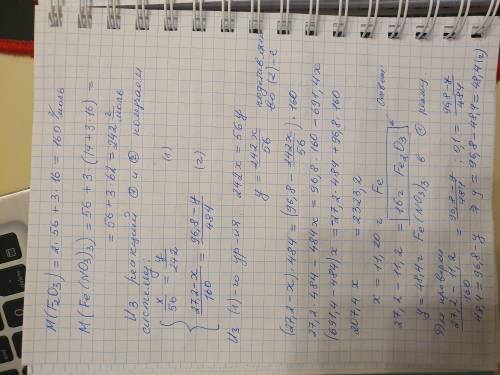 M(Fe₂O₃) = 2·56 + 3·16 = 160 г/моль
M(Fe(NO₃)₃) = 56 + 3·(14+3·16) =
= 56 + 3·62 = 242 г/моль
Из реакций ① и ② составим
систему:
x/56 = y/242 (1)
(27,2-x)/160 = (96,8-y)/484 (2)
Из (1)-го ур-ия 242x = 56y
y = 242x/56 подставляем во (2)-е
(27,2-x)·484 = (96,8 - 242x/56)·160
27,2·484 - 484x = 96,8·160 - 691,4x
(691,4-484)x = -27,2·484 + 96,8·160
207,4x = 2323,2
x = 11,20 г Fe
27,2 - 11,2 = 16 г Fe₂O₃ ответ
y = 48,4 г Fe(NO₃)₃ в ①
Для проверки
(27,2-11,2)/160 = (96,8-y)/484; 0,1 = (96,8-y)/484
48,4 = 96,8-y ⇒ y = 96,8-48,4 = 48,4 (г)